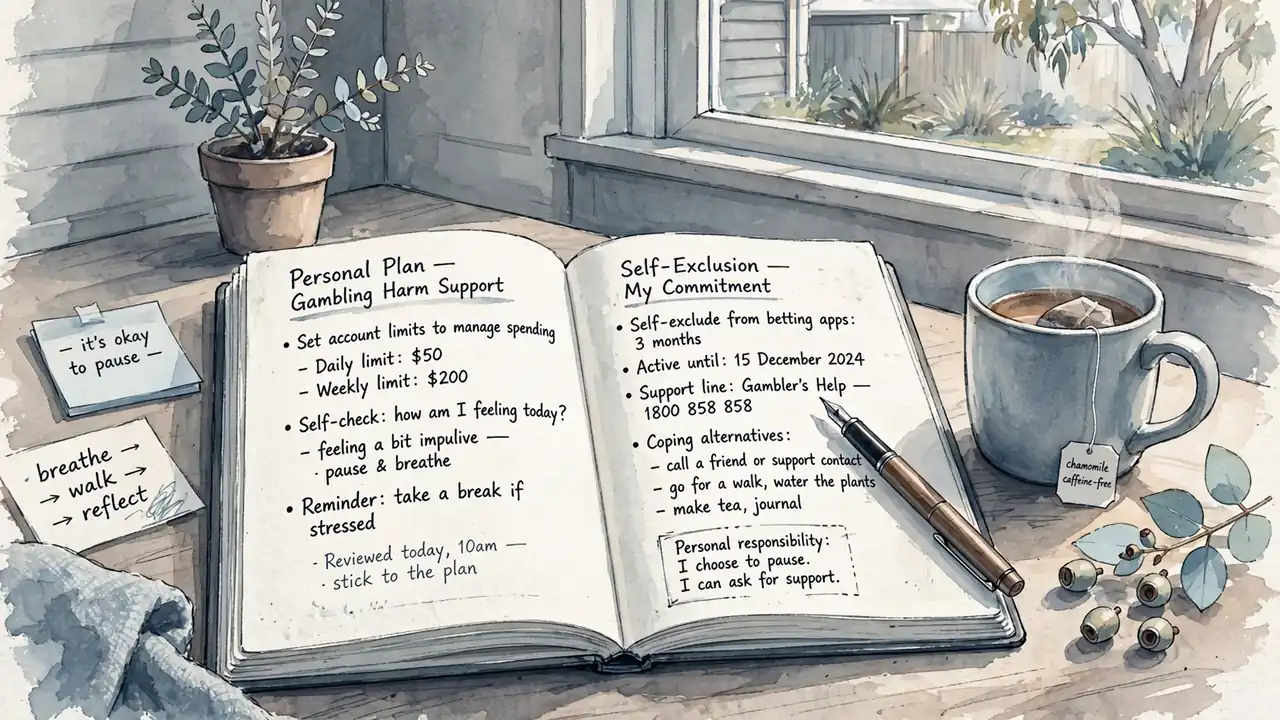 — it's okay
to pause —
breathe →
→ walk →
→ reflect
Personal Plan —
Gambling Harm Support
• Set account limits to manage spending
– Daily limit: $50
– Weekly limit: $200
• Self-check: how am I feeling today?
– feeling a bit impulive —
· pause & breathe
• Reminder: take a break if
stressed
- Reviewed today, 10am —
· stick to the plan
Self-Exclusion —
My Commitment
• Self-exclude from betting apps:
3 months
• Active until: 15 December 2024
• Support line: Gambler's Help —
1800 858 858
• Coping alternatives:
– call a friend or support contact
– go for a walk, water the plants
– make tea, journal
Personal responsibility:
I choose to pause.
I can ask for support.
chamomile
caffeine-free